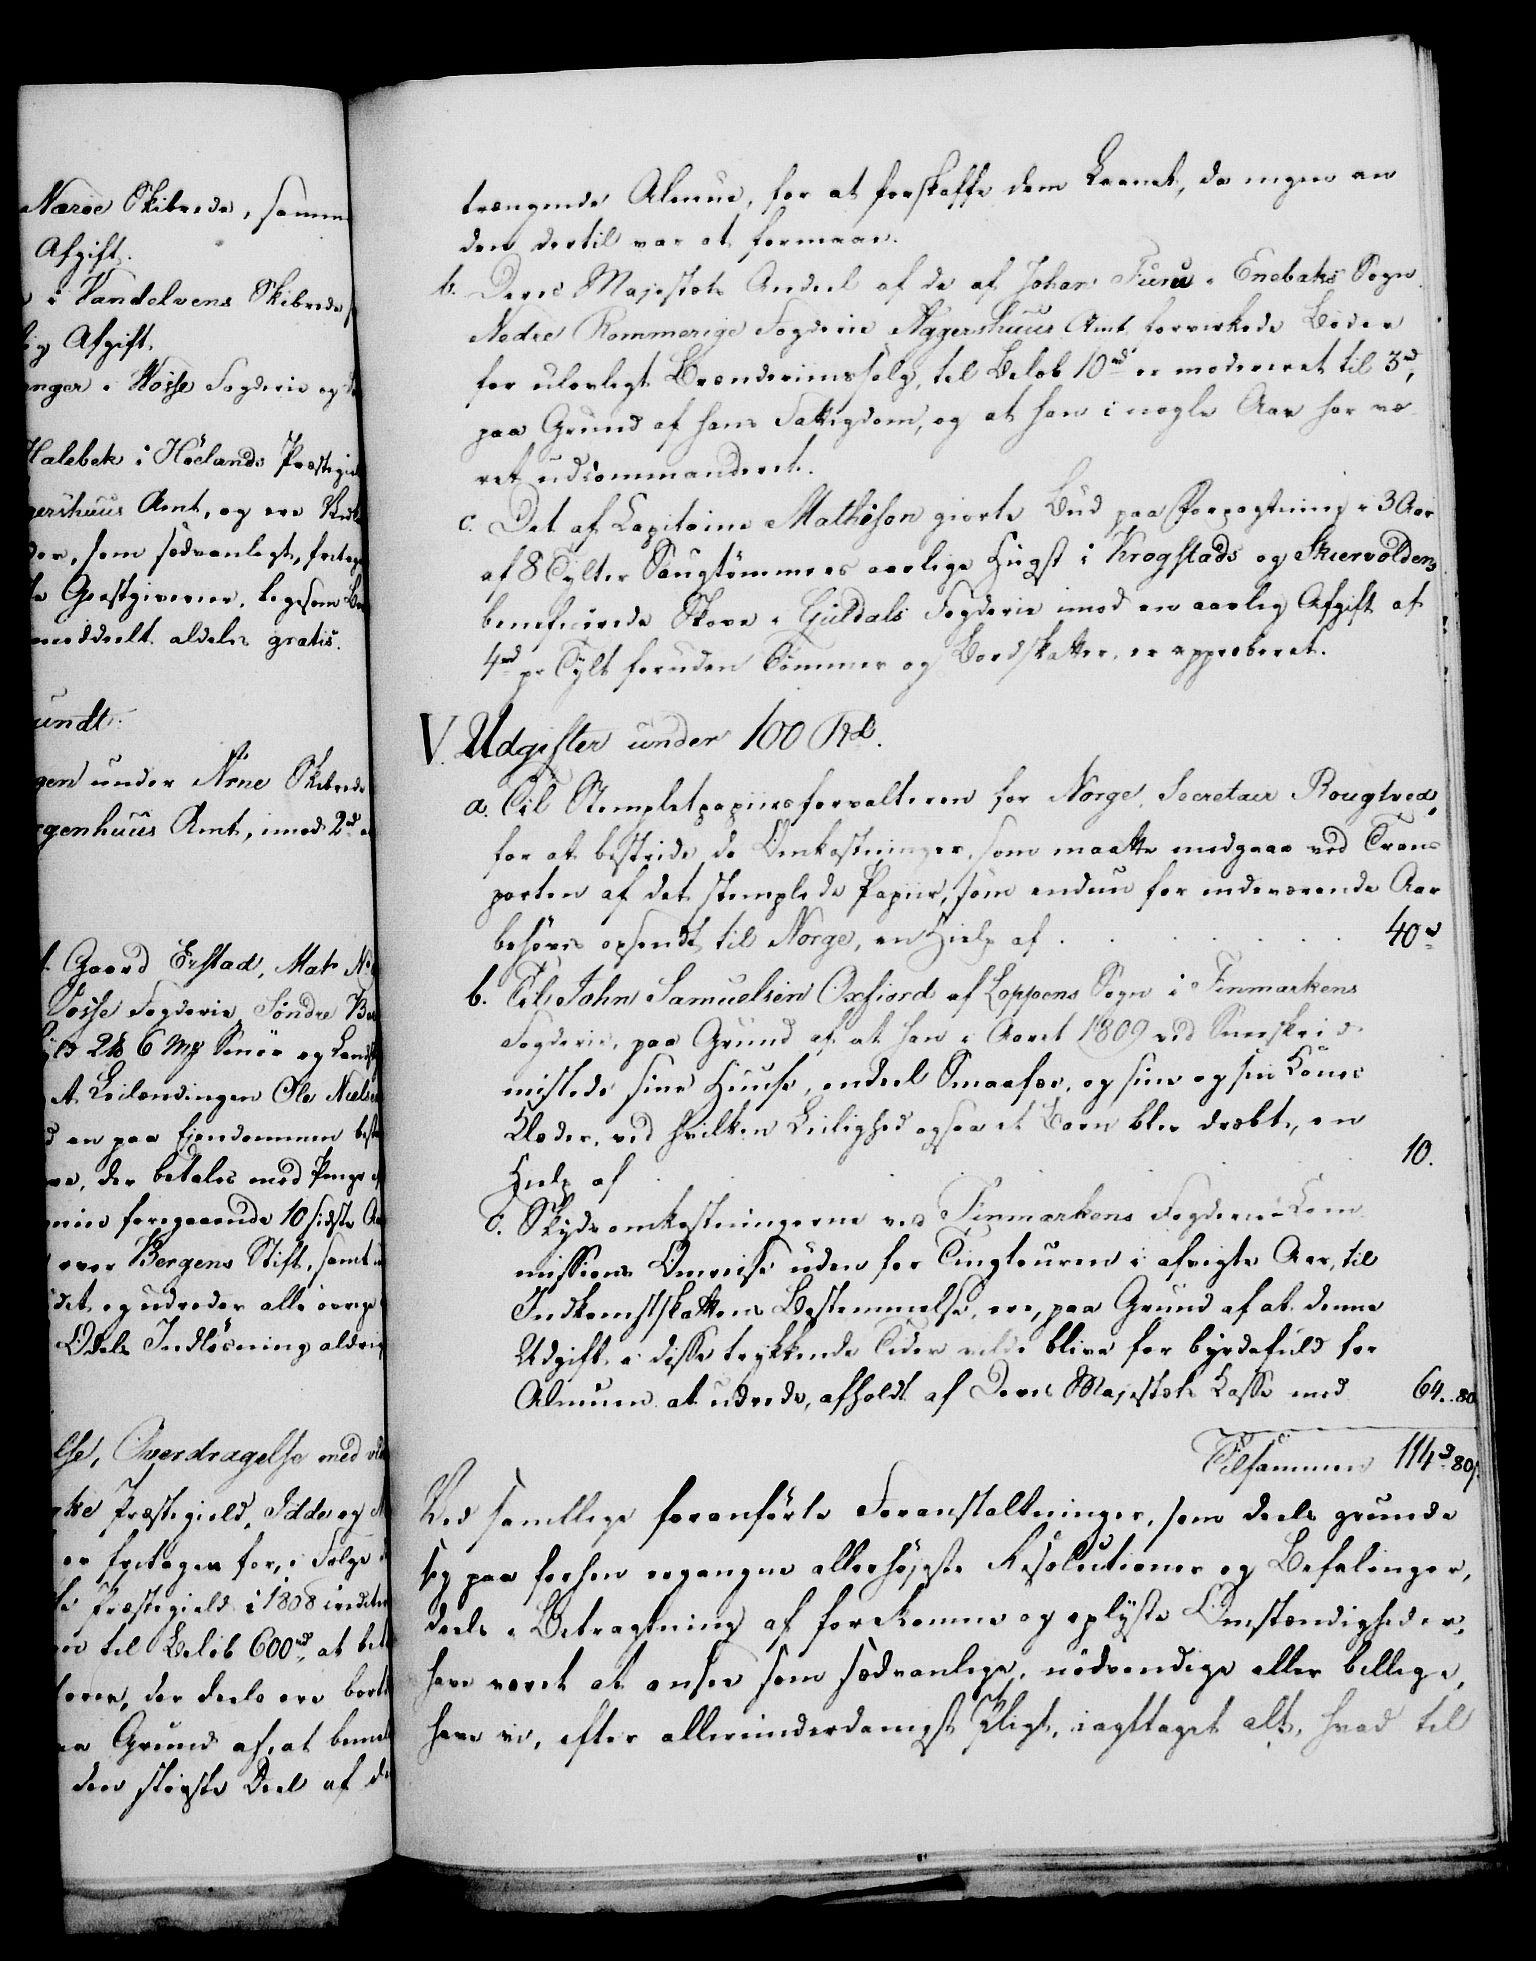 Nærøe Skibrede, samme
Afgift.
i Vandelvens Skibrede
Afgift.
anger i Wosse Fogderie og
Halebek i Hölands Præstegi
gershuus Amt, og ere
der, som sædvanligt, fritag
Giestgiverier, ligesom Be
meddeelt aldeles gratis.
undt.
gen under Arne Skibrede
genhuus Amt, imod 2rd
Gaard Erstad, Matr No
Vosse Fogderie, Söndre Be
6 Mk Smör og Land
At Leilændingen Ole Niels
en paa Eiendommen best
der betales med Penge
foregaaende 10 sidste Aa
over Bergens Stift, samt
det og udreder alle övrige
Odels Indlösning aldrig
lse, Overdragelse med
Præstegield, Idde og
er fritagen for, i Følge
Præstegield i 1808 inddr
til Beløb 600rd, at bet
der deels ere bort
Grund af, at bemel
den störste Deel af d
trængende Almue, for at forskaffe dem Laanet, da ingen an
den dertil var at formaae.
b. Deres Majestæts Andeel af de af Johan Furu i Enebaks Sogn
Nedre Rommerige Fogderie Aggershuus Amt forvirkede Böder
for ulovligt Brændeviinssalg, til Belöb 10rd er modereret til 3rd,
paa Grund af hans Fattigdom, og at han i nogle Aar har væ-
ret udcommanderet.
c. Det af Capitaine Mathisson giorte Bud paa Forpagtning i 3 Aar
af 8 Tylter Saugtömmers aarlige Hugst i Krogstads og Skiervoldens
beneficerede Skove i Guldals Fogderie imod en aarlig Afgift af
4rd pr Tylt foruden Tömmer og Bordskatter, er approberet.
V. Udgifter under 100 Rd.
a. Til Stempletpapiirsforvalteren for Norge, Secretair Rougtved,
for at bestride de Omkostninger, som maatte medgaae ved Trans
porten af det stemplede Papiir, som endnu for indeværende Aar
behöves opsendt til Norge, en Hielp af . . . . . . . 40rd
b. Til John Samuelsen Oxfiord af Loppens Sogn i Finmarkens
Fogderie, paa Grund af at han i Aaret 1809 ved Sneeskred
mistede sine Huuse, endeel Smaafæe, og sine og sin Kones
Klæder, ved hvilken Leilighed ogsaa et Barn blev dræbt, en
Hielp af . . . . . . 10.
c. Skydsomkostningerne ved Finmarkens Fogderie-Com
missions Omreise uden for Tingtouren i afvigte Aar, til
Indkomstskattens Bestemmelse, ere, paa Grund af at denne
Udgift i disse trykkende Tider vilde blive for byrdefuld for
Almuen at udrede, afholdt af Deres Majestæts Casse med 64. 80
Tilsammen 114rd 80s.
Ved samtlige foranförte Foranstaltninger, som deels grunde
sig paa forhen ergangne allerhöjeste Resolutioner og Befalinger,
deels i Betragtning af forekomne og oplyste Omstændigheder,
have været at ansee som sædvanlige, nödvendige eller billige,
have vi, efter allerunderdanigst Pligt, iagttaget alt, hvad til